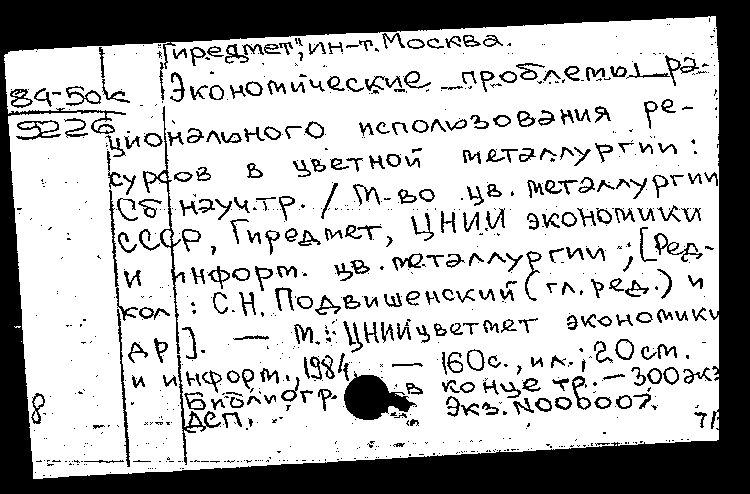 "Гиредмет", ин-т. Москва.
84-50к
9226
Экономические проблемы ра-
ционального использования ре-
сурсов в цветной металлургии:
Сб науч.тр. / М-во цв. металлургии
СССР, Гиредмет, ЦНИИ экономики
и информ. цв. металлургии; [Ред-
кол : С.Н. Подвишенский (гл. ред.) и
др]. — М.: ЦНИИцветмет экономики
и информ., 1984. — 160с., ил.; 20см.
Библиогр. в конце тр. — 300экз
ДСП. Экз. N000007.
8